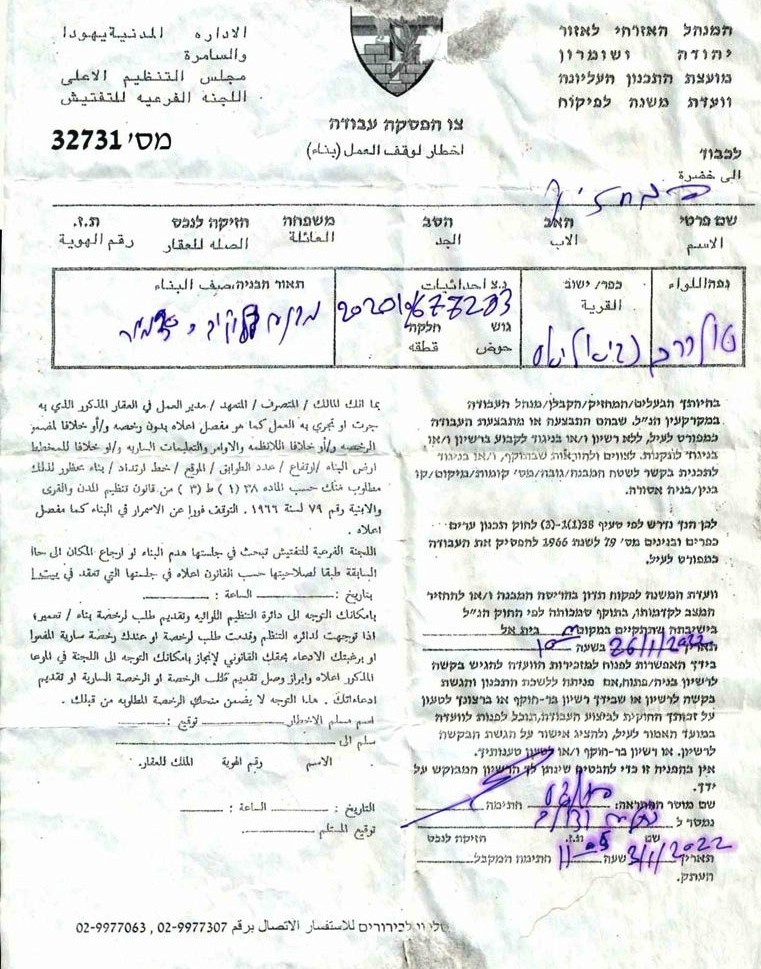 המנהל האזרחי לאזור
יהודה ושומרון
מועצת התכנון העליונה
וועדת משנה לפיקוח
الاداره المدنية يهودا
والسامرة
مجلس التنظيم الاعلى
اللجنه الفرعيه للتفتيش
צו הפסקה עבודה
اخطار لوقف العمل (بناء)
מס' 32731
לכבוד
الى حضرة
שם פרטי האב הסב משפחה חזיקה לנכס ת.ז.
الاسم الاب الجد العائلة الصله للعقار رقم الهوية
נפה/اللواء כפר/ ישוב נ.צ احداثيات תאור הבניה/صيف البناء
القرية
גוש חלקה
حوض قطعه
בהיותך הבעלים/המחזיק/הקבלן/מנהל העבודה
במקרקעין הנ"ל, שבהם התבצעה או מתבצעת העבודה
כמפורט לעיל, ללא רשיון ו/או בניגוד לקבוע ברשיון ו/או
בניגוד לתקנות, לצווים ולהוראות שבתוקף, ו/או בניגוד
לתכנית בקשר לשטח המבנה/גובה/מס' קומות/מיקום/קו
בנין/בניה אסורה.
לכן הנך נדרש לפי סעיף 38(1)-(3) לחוק תכנון ערים
כפרים ובנינים מס' 79 לשנת 1966 להפסיק את העבודה
כמפורט לעיל.
וועדת המשנה לפקוח תדון בהריסת המבנה ו/או להחזיר
המצב לקדמותו, בתוקף סמכותה לפי החוק הנ"ל
בישיבתה שתתקיים במקום בית אל
תאריך 26/1/2022 בשעה
בידך האפשרות לפנות למזכירות הוועדה להגיש בקשה
לרשיון בניה/פתוח, אם פניתה ללשכת התכנון והגשת
בקשה לרשיון או שבידך רשיון בר-חוקף או ברצונך לטעון
על זכותך החוקית לביצוע העבודה, תוכל לפנות לוועדה
במועד האמור לעיל, ולהציג אישור על הגשת הבקשה
לרשיון, או רשיון בר-חוקף ו/או לטעון טענותיך.
אין בהפניה זו כדי להבטיח שינתן לך הרשיון המבוקש על
ידך.
שם מוסר ההתראה: חתימה
נמסר ל
שם ת.ז. חזיקה לנכס
תאריך 3/1/2022 שעה 11 חתימה המקבל
העתק.
بما انك المالك / المتصرف / المتعهد / مدير العمل في العقار المذكور الذي به
جرت او تجري به العمل كما هو مفصل اعلاه بدون رخصه و/أو خلافا لمضمون
الرخصه و/أو خلافا للانظمه والاوامر والتعليمات الساريه و/او خلافا للمخطط
ارض البناء / ارتفاع / عدد الطوابق / الموقع / خط ارتداد / بناء محظور لذلك
مطلوب منك حسب الماده ٣٨ (١) ط (٣) من قانون تنظيم المدن والقرى
والابنية رقم ٧٩ لسنة ١٩٦٦ . التوقف فورا عن الاسمرار في البناء كما مفصل
اعلاه .
اللجنه الفرعيه للتفتيش تبحث في جلستها هدم البناء او ارجاع المكان الى حاله
السابقة طبقا لصلاحيتها حسب القانون اعلاه في جلستها التي تعقد في
بتاريخ: الساعة :
بامكانك التوجه الى دائرة التنظيم اللوائيه وتقديم طلب لرخصة بناء / تعمير؛
اذا توجهت لدائره التنظم وقدمت طلب لرخصة او عندك رخصة سارية المفعول
او برغبتك الادعاء بحقك القانوني لإنجاز بامكانك التوجه الى اللجنة في الموعد
المذكور اعلاه وابراز وصل تقديم طلب الرخصة او الرخصة السارية او تقديم
ادعاءاتك . هذا التوجه لا يضمن منحك الرخصة المطلوبه من قبلك .
اسم مسلم الاخطار توقيع :
سلم الى
الاسم رقم الهوية الملك للعقار.
التاريخ : الساعة :
توقيع المستلم
לבירורים للاستفسار الاتصال برقم 02-9977307 , 02-9977063